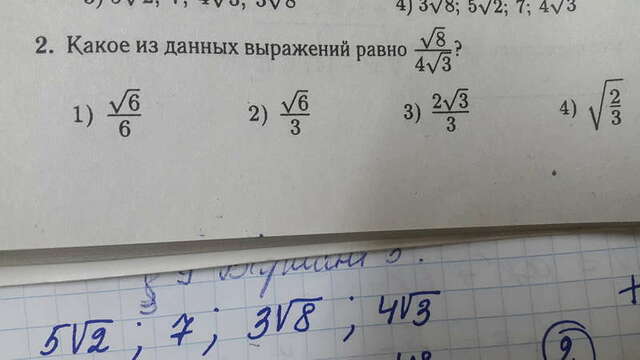 5√2; 7; 4√3; 3√8 4) 3√8; 5√2; 7; 4√3
2. Какое из данных выражений равно √8/4√3?
1) √6/6 2) √6/3 3) 2√3/3 4) √2/3
5√2 ; 7 ; 3√8 ; 4√3